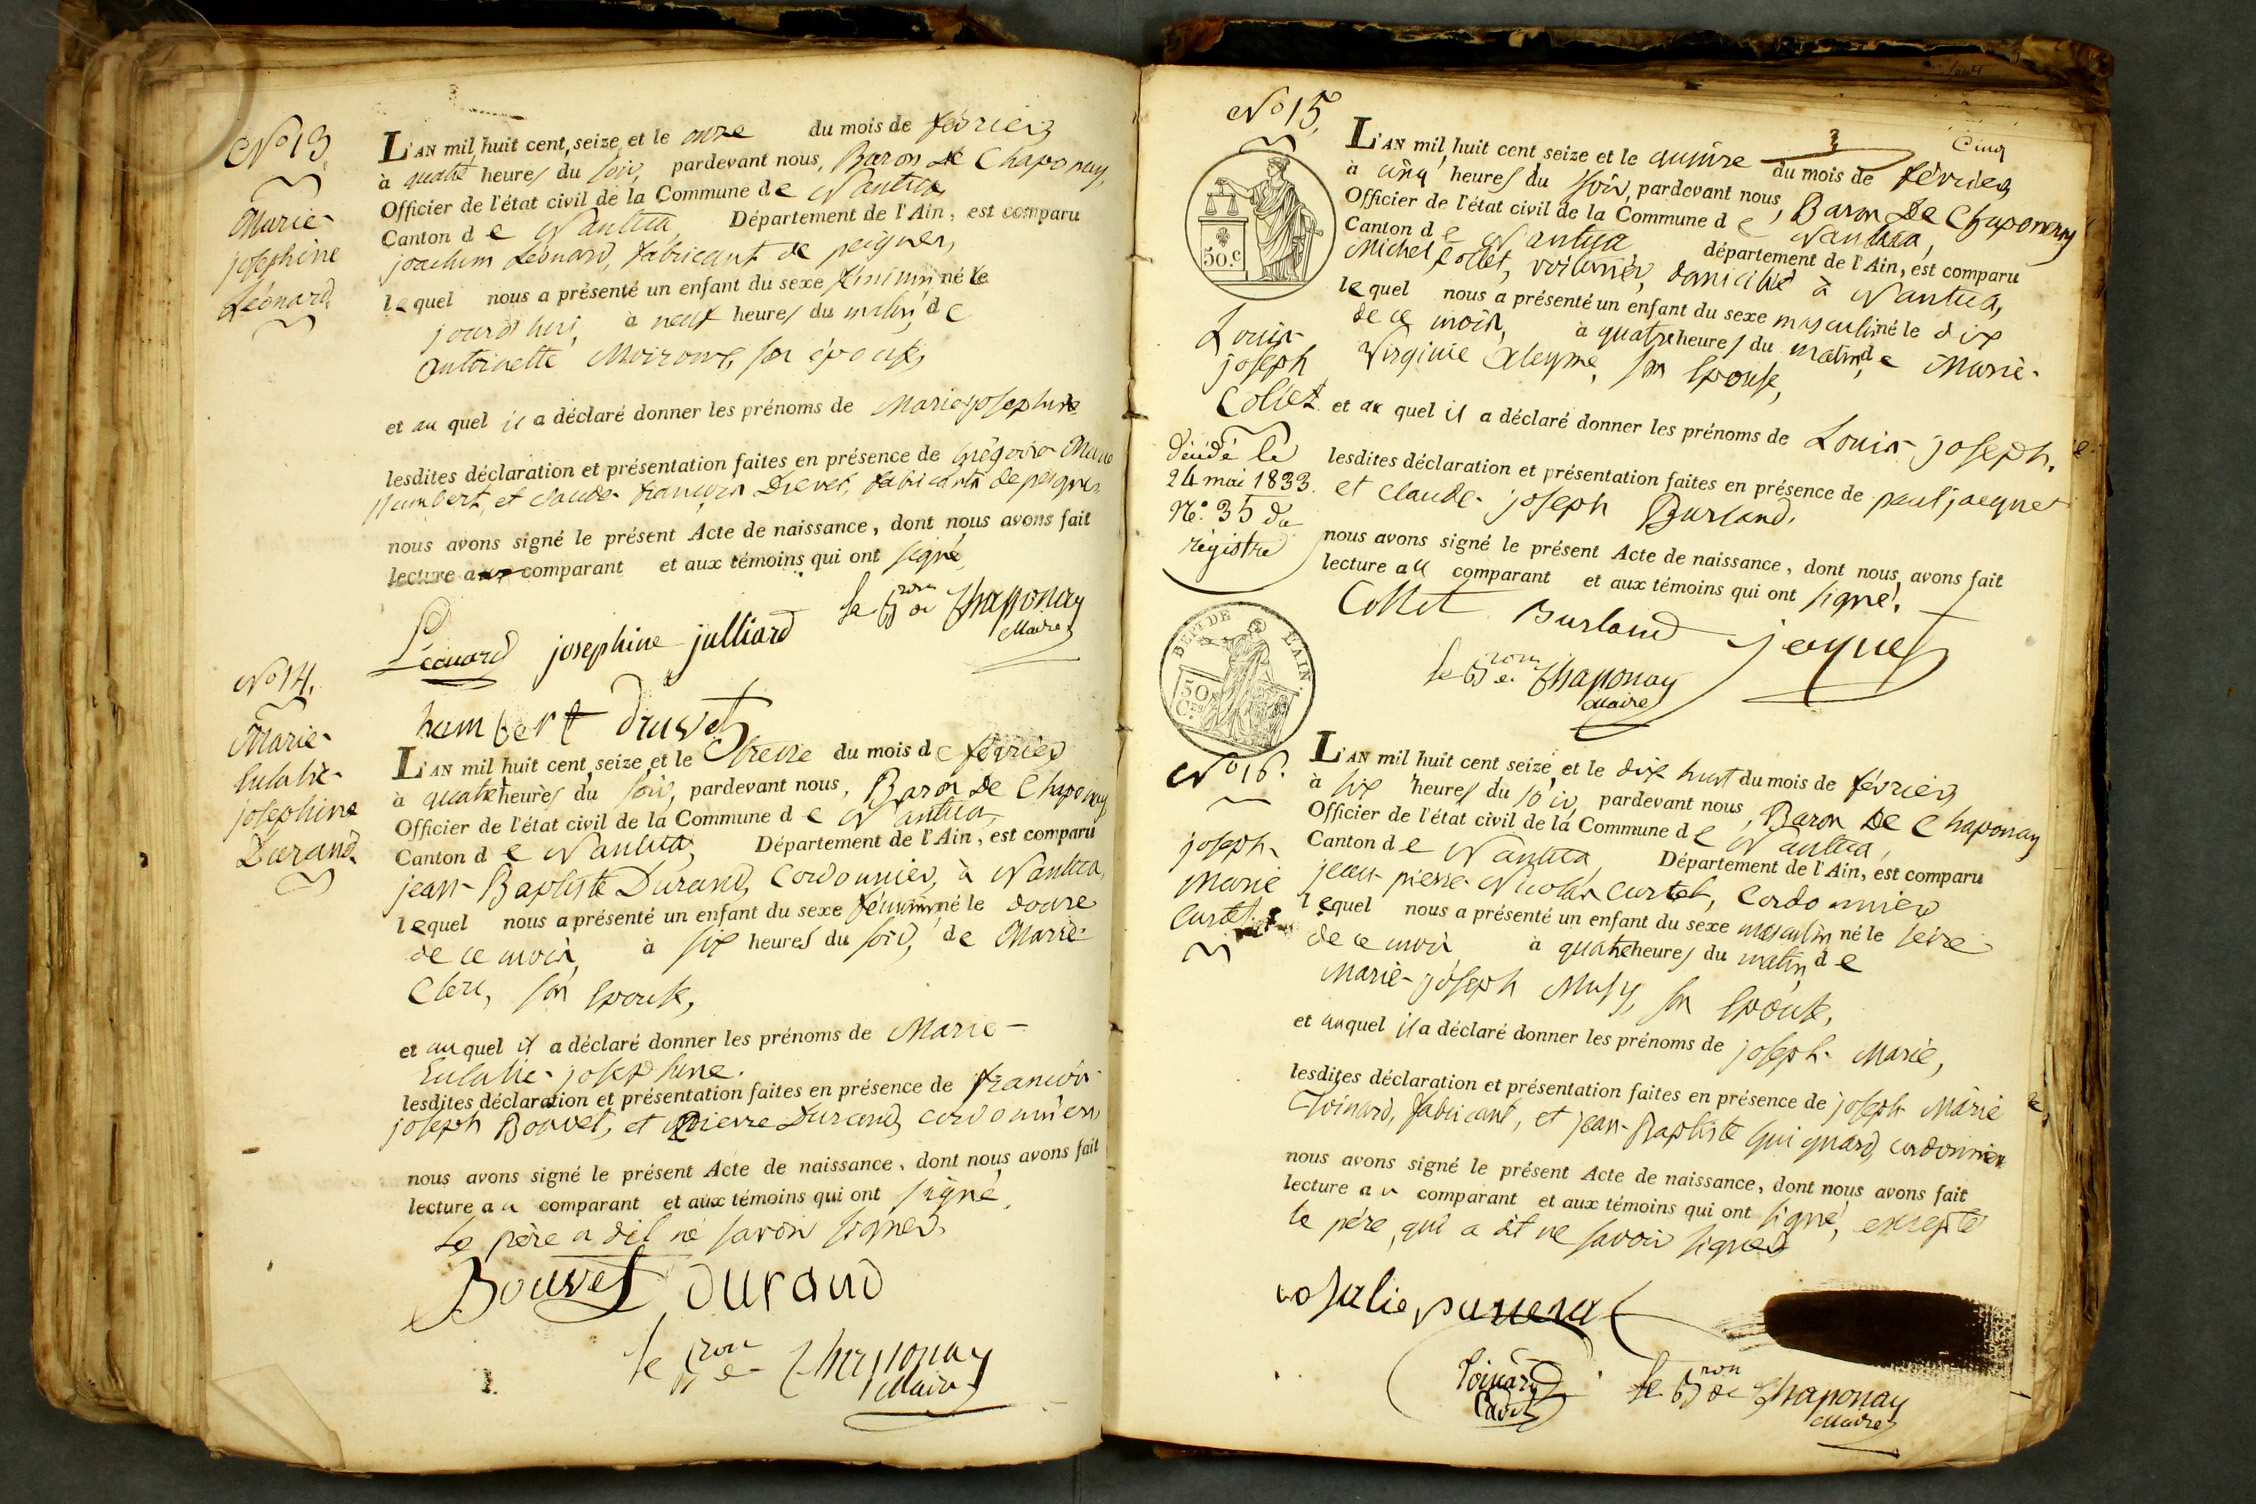 No 13.
Marie-
josephine
Léonard.
L'AN mil huit cent seize et le onze du mois de février
à quatre heures du soir, pardevant nous, Baron de Chaponay,
Officier de l'état civil de la Commune de Nantua,
Canton de Nantua, Département de l'Ain, est comparu
joachim Léonard, fabricant de peignes,
lequel nous a présenté un enfant du sexe féminin né ce
jourd'hui, à neuf heures du matin, de
antoinette son épouse,
et au quel il a déclaré donner les prénoms de Marie josephine
lesdites déclaration et présentation faites en présence de grégoire Marie
humbert, et claude françois fabricants de peignes
nous avons signé le présent Acte de naissance, dont nous avons fait
lecture au comparant et aux témoins qui ont signé,
Léonard josephine julliard le Bron de Chaponay
Maire
humbert
No 14.
Marie-
Eulalie-
josephine
Durand.
L'AN mil huit cent seize et le treize du mois de février
à quatre heures du soir, pardevant nous, Baron De Chaponay
Officier de l'état civil de la Commune de Nantua,
Canton de Nantua, Département de l'Ain, est comparu
jean-Baptiste Durand, Cordonnier, à Nantua,
lequel nous a présenté un enfant du sexe féminin né le douze
de ce mois, à six heures du soir, de Marie-
Clerc, son Epouse,
et au quel il a déclaré donner les prénoms de Marie-
Eulalie-josephine.
lesdites déclaration et présentation faites en présence de françois
joseph Bouvet, et pierre Durand, cordonniers
nous avons signé le présent Acte de naissance, dont nous avons fait
lecture au comparant et aux témoins qui ont signé,
Le père a dit ne savoir signer.
Bouvet Durand
le Bron de Chaponay
Maire
Cinq
No 15.
50.c
Louis-
joseph
Collet
Décédé le
24 mai 1833.
No. 35 du
régistre
L'AN mil huit cent seize et le quinze du mois de février
à cinq heures du soir, pardevant nous, Baron De Chaponay
Officier de l'état civil de la Commune de Nantua,
Canton de Nantua département de l'Ain, est comparu
Michel Collet, voiturier, domicilié à Nantua,
lequel nous a présenté un enfant du sexe masculin né le dix
de ce mois, à quatre heures du matin, de Marie-
Virginie Aleyme, son Epouse,
et au quel il a déclaré donner les prénoms de Louis-joseph.
lesdites déclaration et présentation faites en présence de paul jacquet
et Claude-joseph Burland.
nous avons signé le présent Acte de naissance, dont nous avons fait
lecture au comparant et aux témoins qui ont signé.
Collet Burland jaquet
le Bron de Chaponay
Maire
DEPT DE L'AIN.
50
No 16.
joseph-
Marie
Curtet.
L'AN mil huit cent seize et le dix huit du mois de février
à six heures du soir, pardevant nous, Baron De Chaponay
Officier de l'état civil de la Commune de Nantua,
Canton de Nantua, Département de l'Ain, est comparu
jean pierre Nicolas Curtet, Cordonnier
lequel nous a présenté un enfant du sexe masculin né le seize
de ce mois à quatre heures du matin, de
Marie-joseph Musy, son Epouse,
et auquel il a déclaré donner les prénoms de joseph-Marie,
lesdites déclaration et présentation faites en présence de joseph Marie
Thoinard, fabricant, et jean-Baptiste Guignard, cordonnier
nous avons signé le présent Acte de naissance, dont nous avons fait
lecture au comparant et aux témoins qui ont signé, excepté
le père, qui a dit ne savoir signer
le Bron de Chaponay
Maire